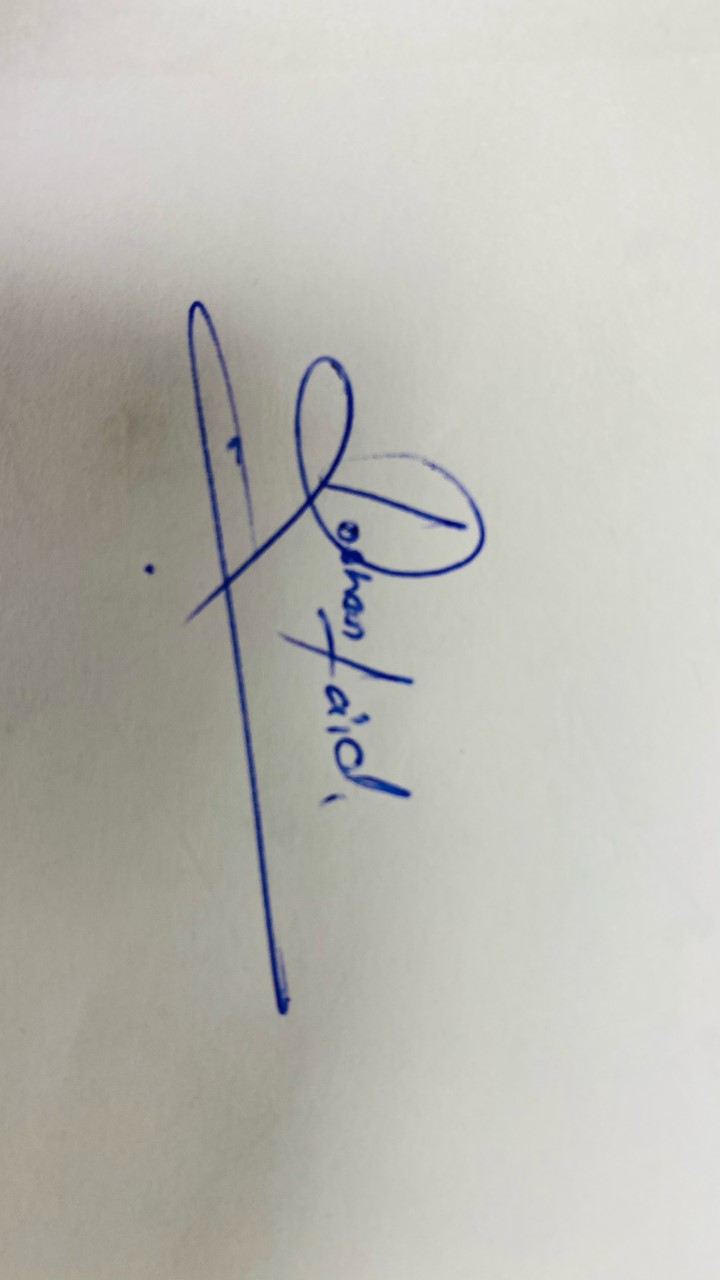 Roshan faid.